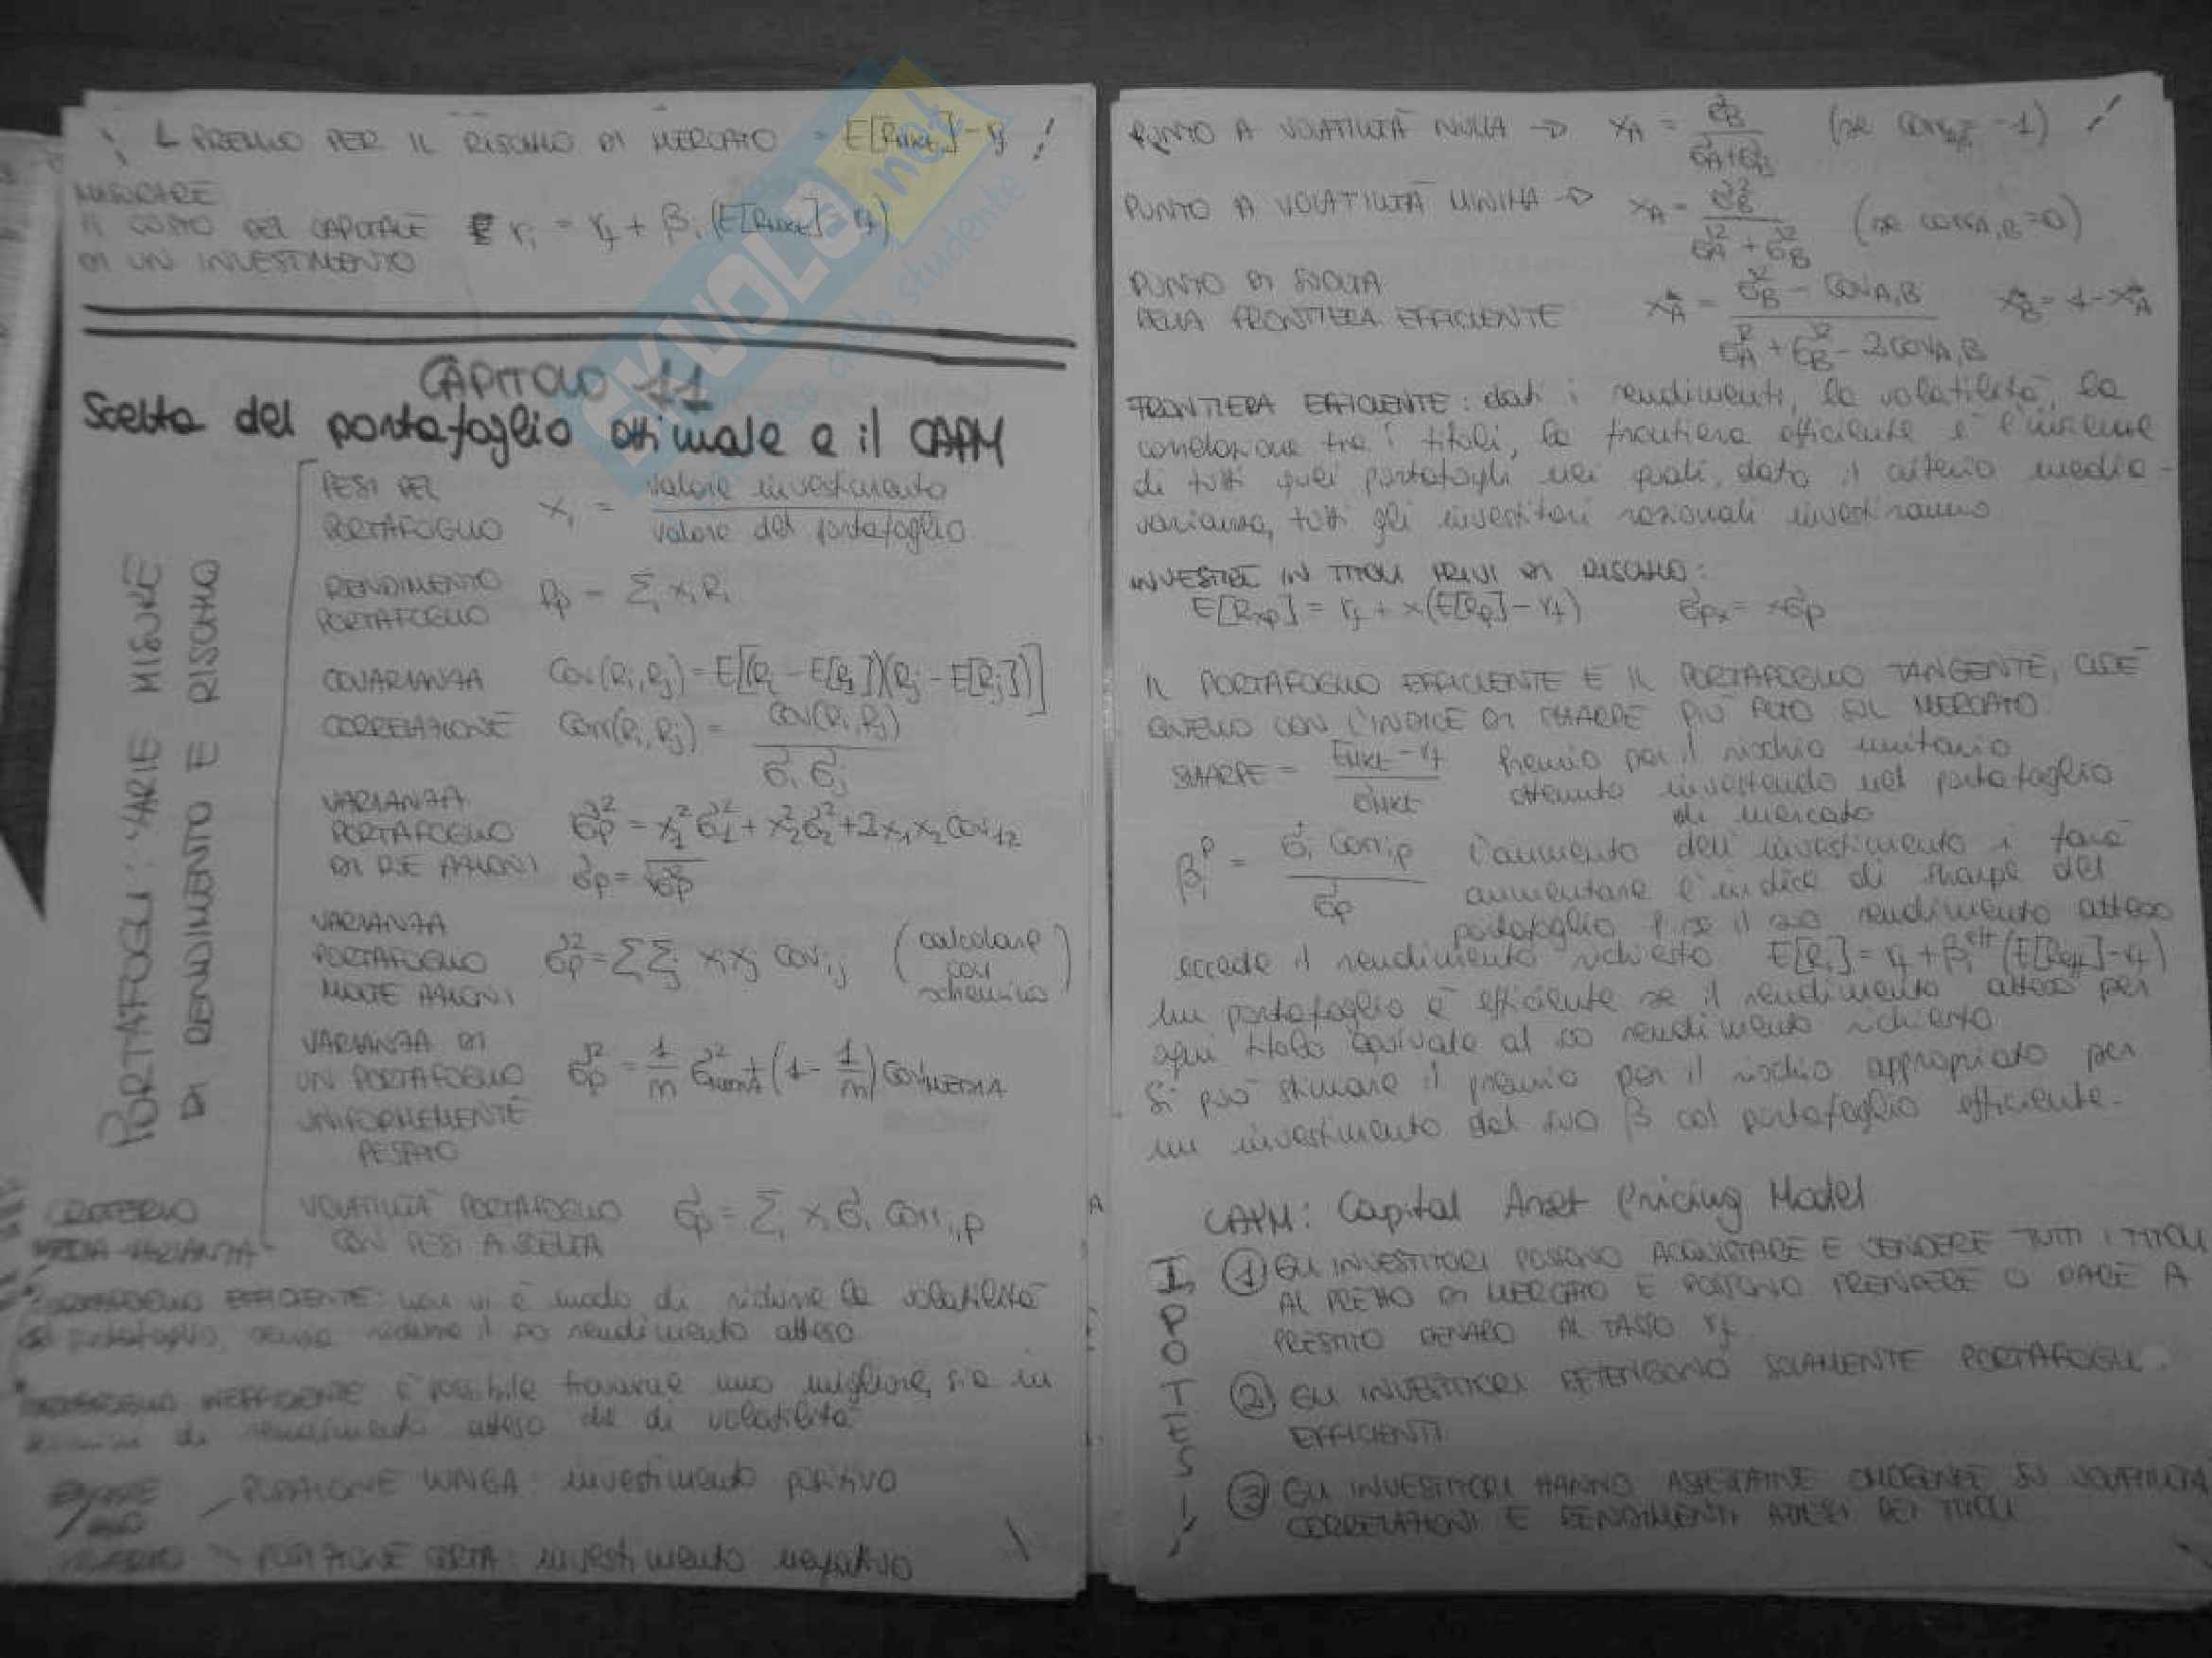 ↳ PREMIO PER IL RISCHIO DI MERCATO = E[R_MKT] - rf !
MISURARE
IL COSTO DEL CAPITALE ri = rf + βi (E[R_MKT] - rf)
DI UN INVESTIMENTO
CAPITOLO 11
Scelta del portafoglio ottimale e il CAPM
PORTAFOGLI: VARIE MISURE
DI RENDIMENTO E RISCHIO
PESI DEL
PORTAFOGLIO xi = valore investimento / valore del portafoglio
RENDIMENTO
PORTAFOGLIO Rp = Σi xi Ri
COVARIANZA Cov(Ri,Rj) = E[(Ri - E[Ri])(Rj - E[Rj])]
CORRELAZIONE Corr(Ri,Rj) = Cov(Ri,Rj) / σi σj
VARIANZA
PORTAFOGLIO σp² = x1² σ1² + x2² σ2² + 2x1x2 Cov12
DI DUE AZIONI σp = √σp²
VARIANZA
PORTAFOGLIO σp² = Σi Σj xi xj Cov i,j (calcolare con schemino)
MOLTE AZIONI
VARIANZA DI
UN PORTAFOGLIO σp² = 1/m σ² + (1 - 1/m) Cov MEDIA
UNIFORMEMENTE
PESATO
VOLATILITÀ PORTAFOGLIO σp = Σi xi σi Corr i,p
CON PESI A SCELTA
CRITERIO
MEDIA-VARIANZA
PORTAFOGLIO EFFICIENTE: non vi è modo di ridurre la volatilità
del portafoglio, senza ridurre il so rendimento atteso
PORTAFOGLIO INEFFICIENTE è possibile trovarne uno migliore, sia in
termini di rendimento atteso che di volatilità
POSIZIONE LUNGA: investimento positivo
POSIZIONE CORTA: investimento negativo
PUNTO A VOLATILITÀ NULLA → xA = σB / σA+σB (se corr A,B = -1) !
PUNTO A VOLATILITÀ MINIMA → xA = σB² / σA² + σB² (se corr A,B = 0)
PUNTO DI SVOLTA
DELLA FRONTIERA EFFICIENTE xA* = σB² - Cov A,B / σA² + σB² - 2 Cov A,B xB* = 1 - xA*
FRONTIERA EFFICIENTE: dati i rendimenti, la volatilità, la
correlazione tra i titoli, la frontiera efficiente è l'insieme
di tutti quei portafogli nei quali, dato il criterio media-
varianza, tutti gli investitori razionali investiranno
INVESTIRE IN TITOLI PRIVI DI RISCHIO:
E[Rxp] = rf + x(E[Rp] - rf) σpx = xσp
IL PORTAFOGLIO EFFICIENTE È IL PORTAFOGLIO TANGENTE, CIOÈ
QUELLO CON L'INDICE DI SHARPE PIÙ ALTO SUL MERCATO
SHARPE = E MKT - rf / σ MKT Premio per il rischio unitario
ottenuto investendo nel portafoglio
di mercato
βi^p = σi corr i,p / σp L'aumento dell'investimento i farà
aumentare l'indice di sharpe del
portafoglio P se il suo rendimento atteso
eccede il rendimento richiesto E[Ri] = rf + βi^eff (E[Reff] - rf)
un portafoglio è efficiente se il rendimento atteso per
ogni titolo equivale al so rendimento richiesto
Si può stimare il premio per il rischio appropriato per
un investimento dal suo β col portafoglio efficiente.
CAPM: Capital Asset Pricing Model
IPOTESI
① GLI INVESTITORI POSSONO ACQUISTARE E VENDERE TUTTI I TITOLI
AL PREZZO DI MERCATO E POSSONO PRENDERE O DARE A
PRESTITO DENARO AL TASSO rf
② GLI INVESTITORI DETENGONO SOLAMENTE PORTAFOGLI
EFFICIENTI
③ GLI INVESTITORI HANNO ASPETTATIVE OMOGENEE SU VOLATILITÀ
CORRELAZIONI E RENDIMENTI ATTESI DEI TITOLI
SKUOLA.net